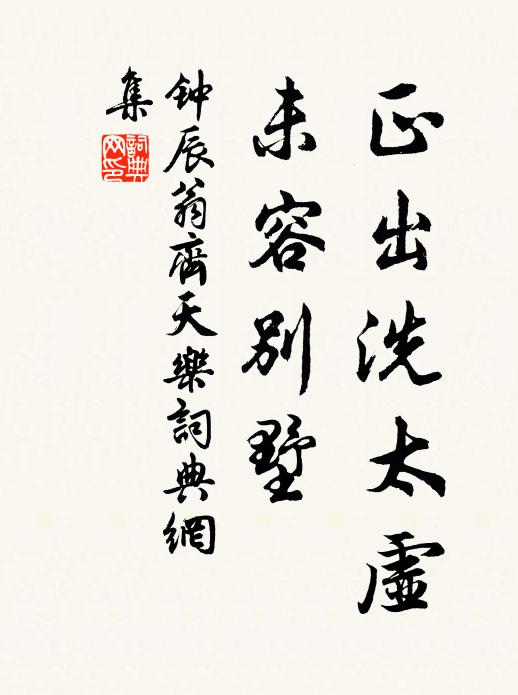 正出洗太虛
未容别墅
钟辰翁齊天樂詞典網
集
詞典
网印